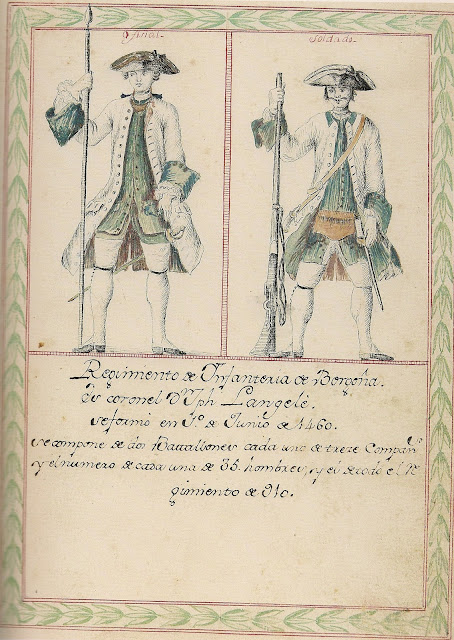 Oficial.
Soldado.
Regimiento de Infanteria de Borgoña.
Es coronel Dⁿ Jphᵖ Langelé.
se formo en 1º. de Junio de 1460.
se compone de dos Battallones cada uno de treze Compañˢ
y el numero de cada una de 35. hombres, y el de todo el Re
gimiento de 910.